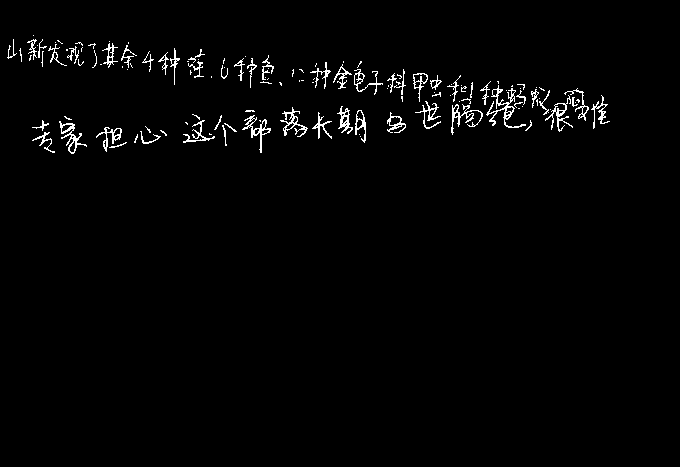 山新发现了其余4种蛙、6种鱼、12种金龟子科甲虫和1种蚂蚁
专家担心这个部落长期与世隔绝,很难